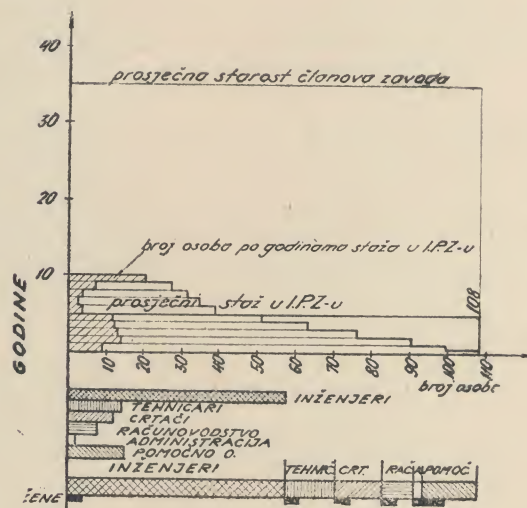 40
prosječna starost članova zavoda
30
20
broj osoba po godinama staža u I.P.Z-u
10
prosječni staž u I.P.Z-u
108
GODINE
10 20 30 40 50 60 70 80 90 100 110
broj osoba
INŽENJERI
TEHNIČARI
CRTAČI
RAČUNOVODSTVO
ADMINISTRACIJA
POMOĆNO O.
INŽENJERI TEHNIČ. CRT. RAČ. A POMOĆ
ŽENE